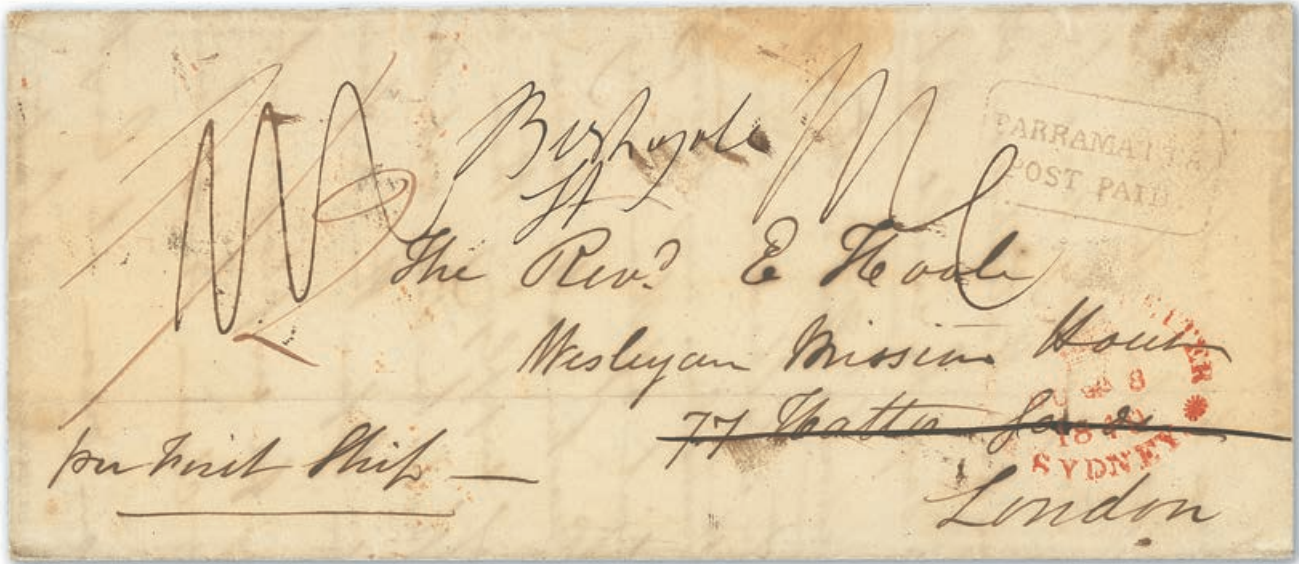 Bishopgate
St
PARRAMATTA
POST PAID
The Revd. E Hoole
Wesleyan Mission House
77 Hatton Garden
London
per First Ship
8
1840
SYDNEY